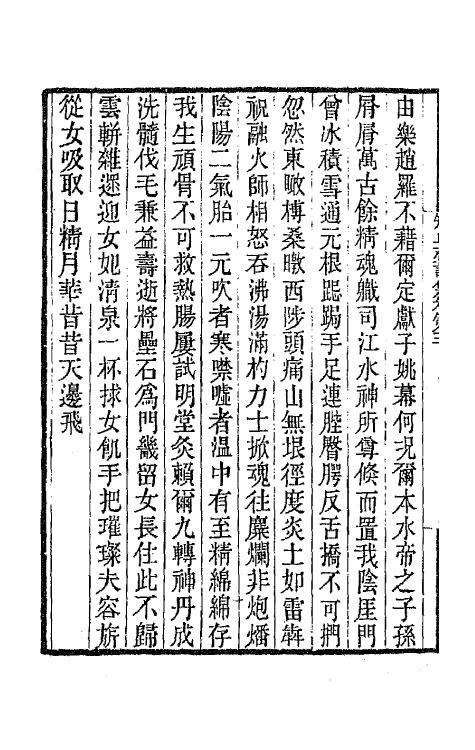 由樂趙羅不藉爾定獻子姚幕何况爾本水帝之子孫
屑屑萬古餘精魂職司江水神所尊倏而置我陰厓門
曾冰積雪通元根跽跼手足連腔臀腭反舌撟不可捫
忽然東暾榑桑暾西陟頭痛山無垠徑度炎土如雷犇
祝融火師相怒吞沸湯滿杓力士掀魂往麋爛非炮燔
陰陽二氣胎一元吹者寒噤噓者温中有至精綿綿存
我生頑骨不可救熱腸屢試明堂灸賴爾九轉神丹成
洗髓伐毛兼益壽逝將壘石爲門畿留女長住此不歸
雲軿雜遝迎女妃清泉一杯捄女飢手把璀璨夫容旂
從女吸取日精月華昔昔天邊飛